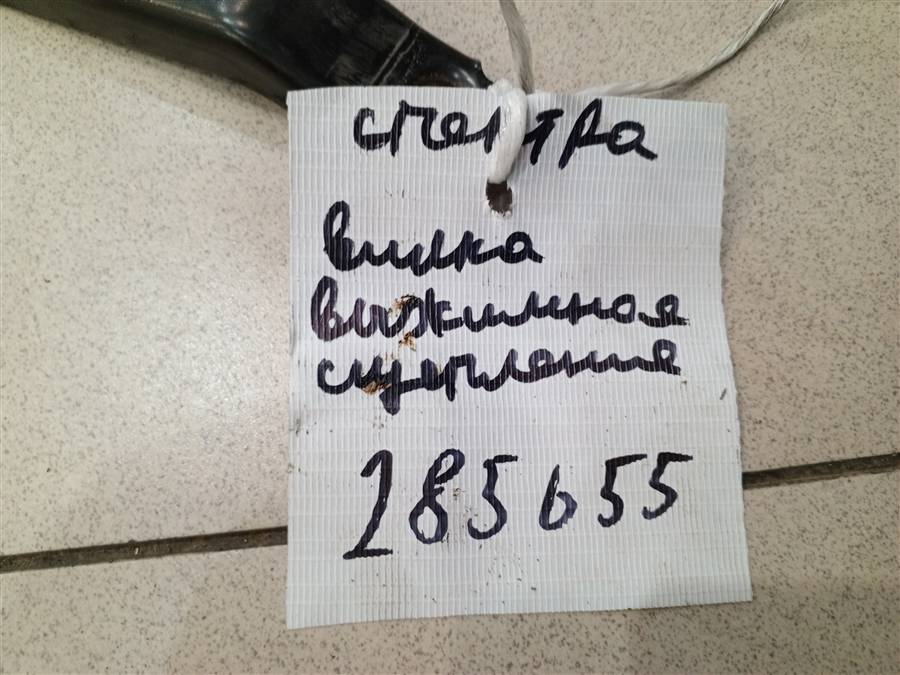 спектра
вилка
выжимная
сцепления
285655